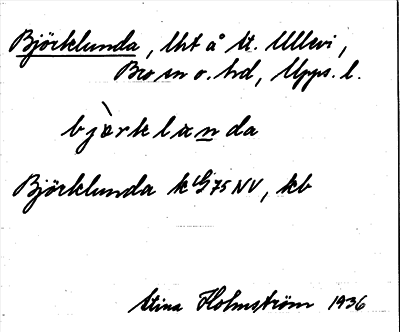 Björklunda, lht å St. Ullevi,
Bro sn o. hd, Upps. l.
bjὰrklanda
Björklunda k G 75 NV, kb
Stina Holmström 1936